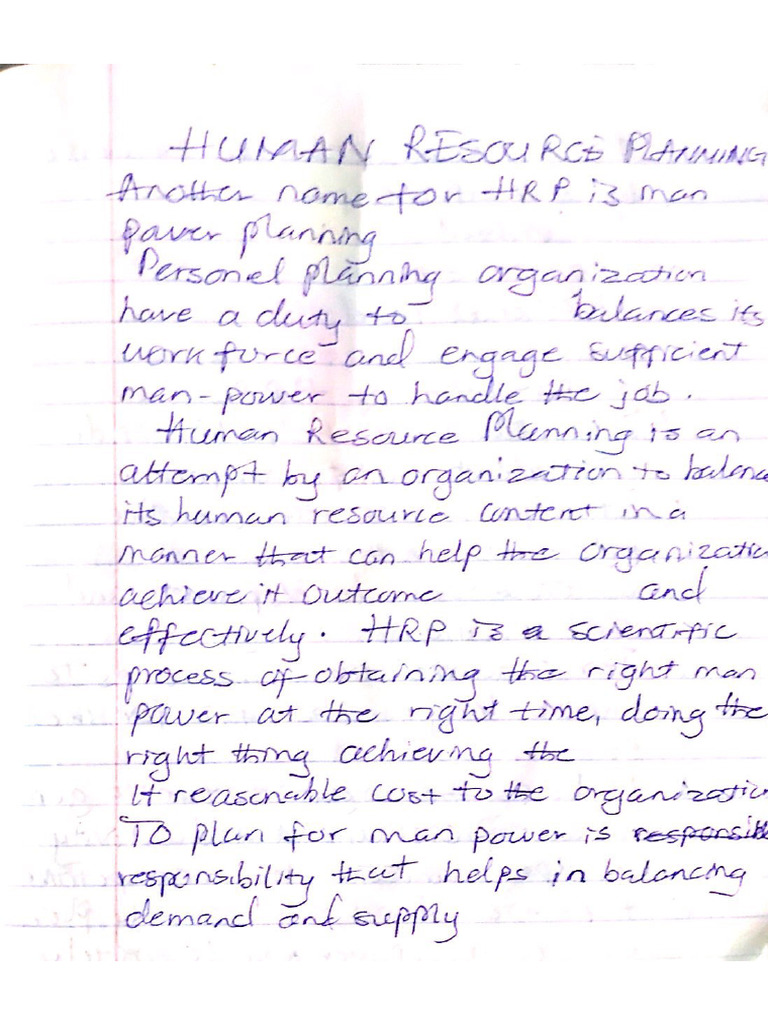 HUMAN RESOURCE PLANNING
Another name for HRP is man
power planning
Personel planning organization
have a duty to balances its
work force and engage sufficient
man-power to handle the job.
Human Resource Planning is an
attempt by an organization to balanc
its human resource content in a
manner that can help the organizatio
achieve it outcome and
effectively. HRP is a scientific
process of obtaining the right man
power at the right time, doing the
right thing achieving the
It reasonable cost to the organizatio
To plan for man power is responsib
responsibility that helps in balancing
demand and supply